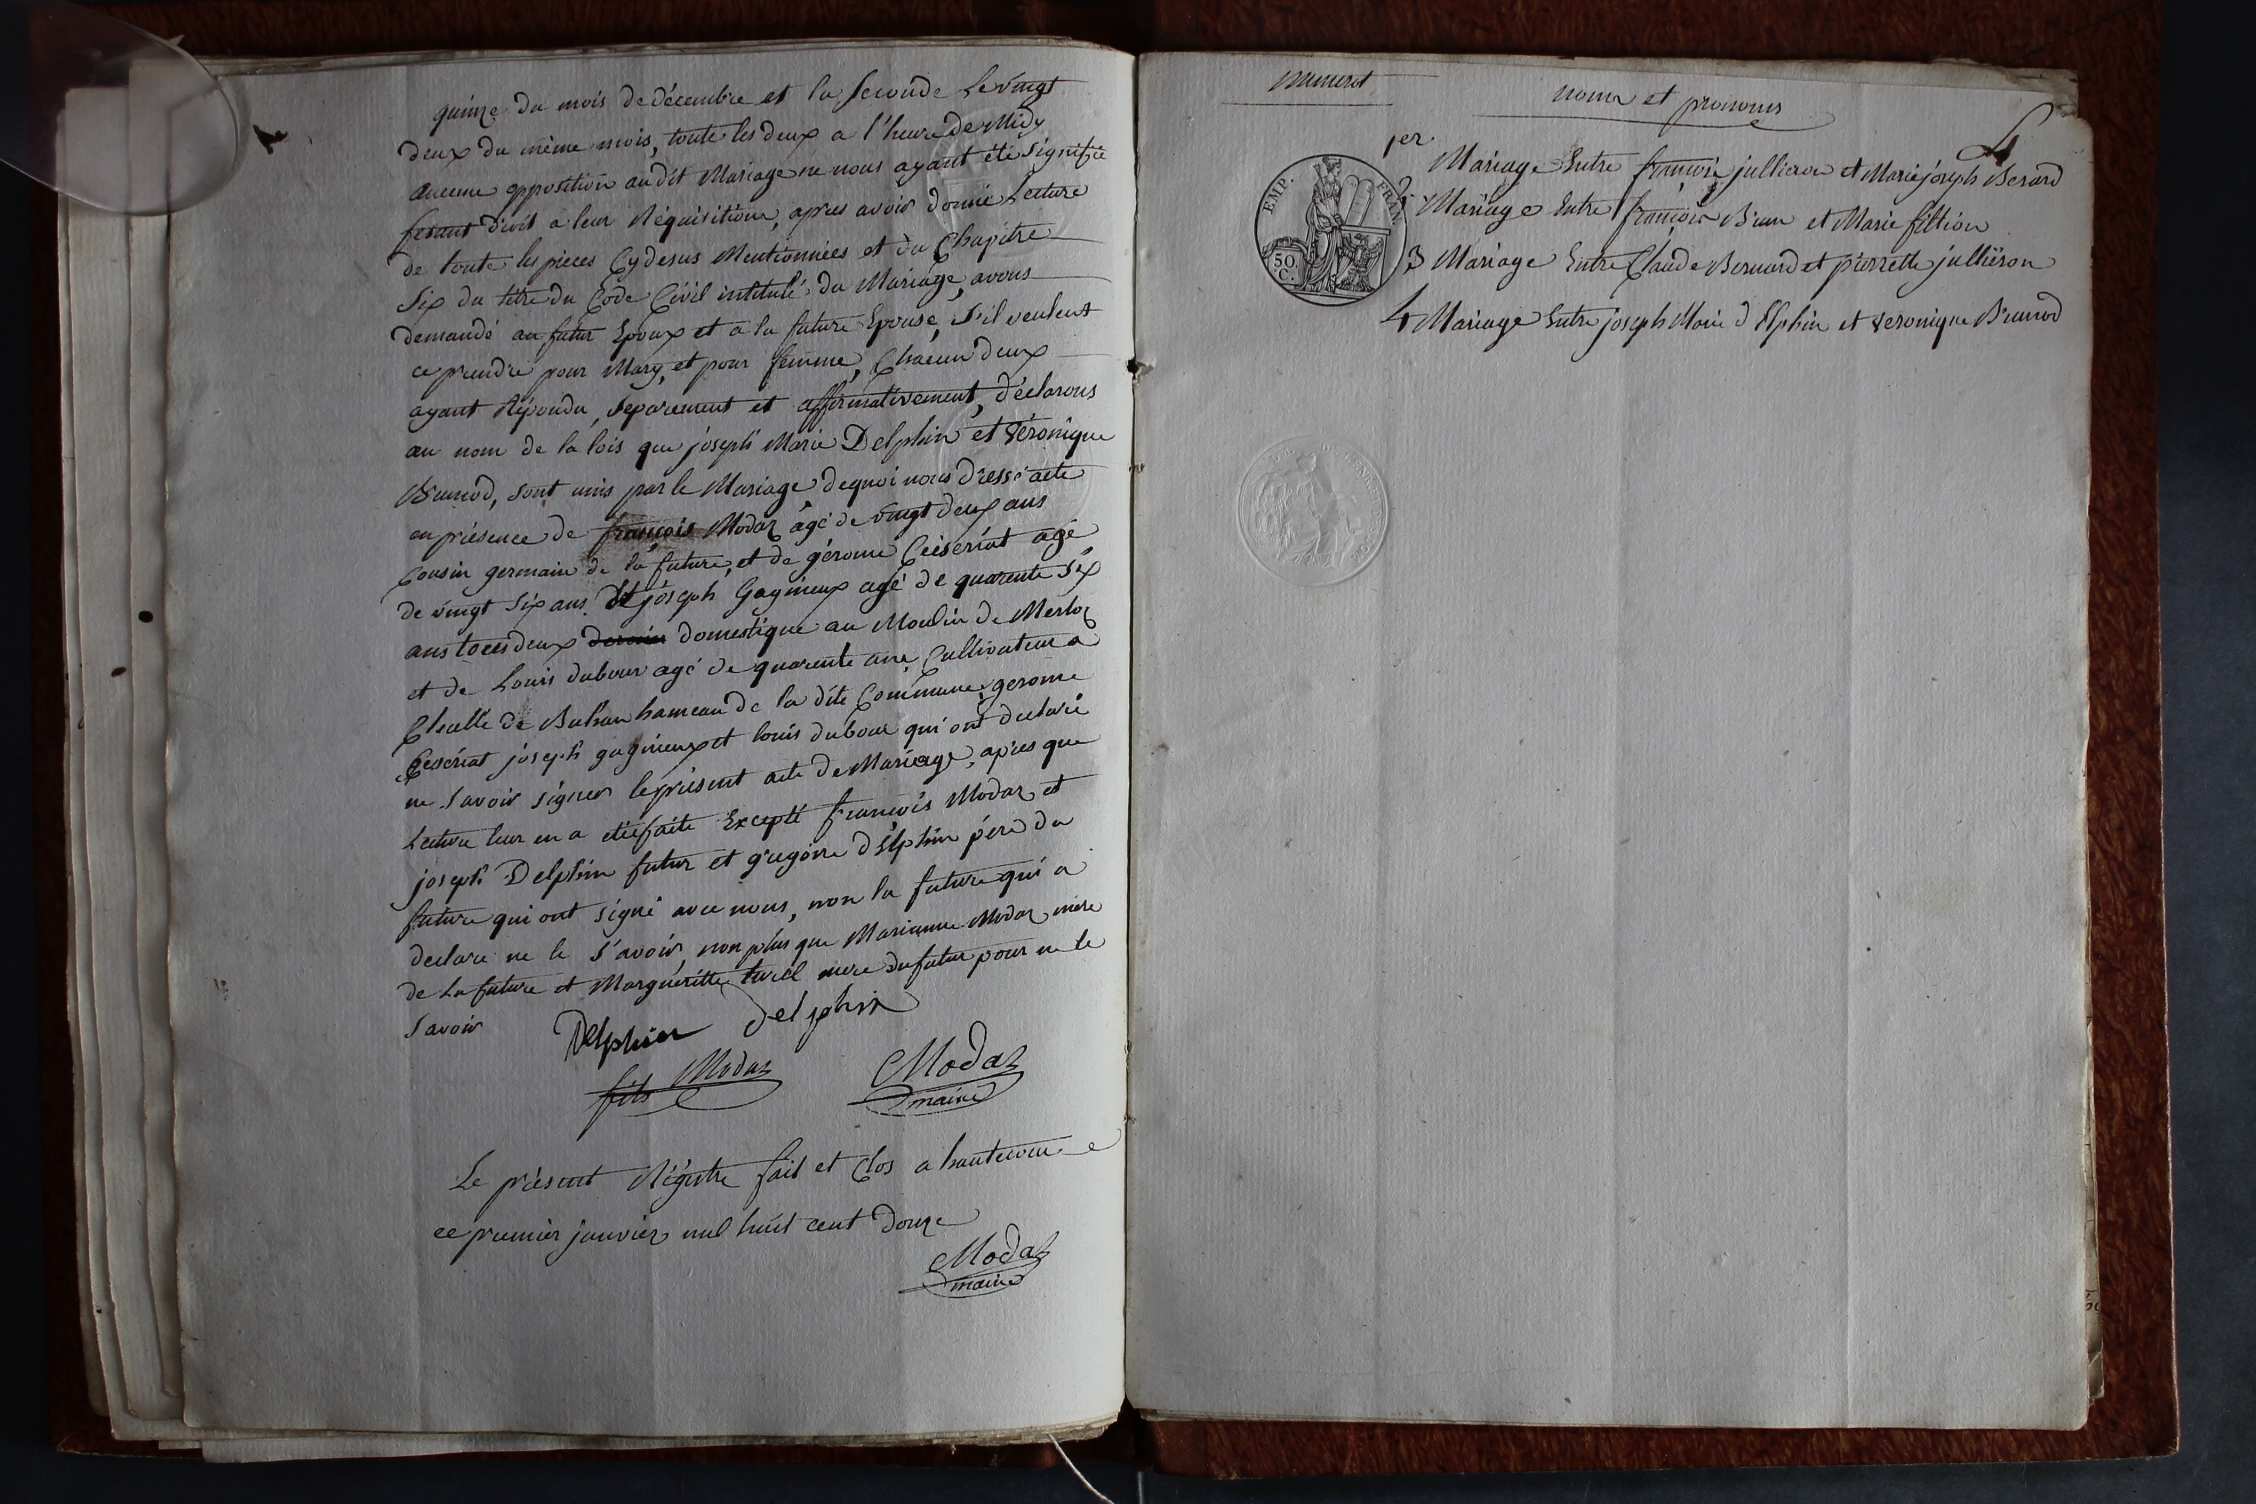 quinze du mois de décembre et la seconde le vingt
deux du même mois, toute les deux a l'heure de Midy
aucune opposition audit Mariage ne nous ayant été signifié
fesant droit a leur Réquisition, apres avoir donné Lecture
de toute les pieces Cydesus Mentionnées et du Chapitre
Six du titre du Code Civil intitulé du Mariage, avons
demandé au futur Epoux et a la future Epouse, s'il veulent
ce prendre pour Mary, et pour femme, Chacun deux
ayant Répondu, separement et affirmativement, déclarons
au nom de la lois que joseph Marie Delphin et Véronique
Brunod, sont unis par le Mariage dequoi nous dressé acte
en présence de françois Modaz âgé de vingt deux ans
Cousin germain de la future, et de gérome Ceiseriat agé
de vingt six ans et joseph Gagnieux agé de quarente six
ans tous deux domestique au Moulin de Merloz
et de Louis dubour agé de quarente ans Cultivateur a
de hameau de la dite Commune, gerome
Ceseriat joseph gagnieux et louis dubour qui ont declaré
ne savoir signer le présent acte de Mariage, apres que
Lecture leur en a été faite Excepté françois Modaz et
joseph Delphin futur et grégoire délphin pere du
future qui ont signé avec nous, non la future qui a
declaré ne le s'avoir, non plus que Marianne Modaz mere
de la future et Margueritte turel mere du futur pour ne le
savoir
Delphin delphin
Modaz fils
Modaz maire
Le présent Régistre fait et Clos a hautecour
ce premier janvier mil huit cent douze
Modaz
maire
numerot
noms et pronoms
4
1er Mariage Entre françois jullieron et Marie joseph Berard
EMP. FRAN.
50 C.
2 Mariage Entre françois Brun et Marie fillion
3 Mariage Entre Claude Bernard et pierrette jullieron
4 Mariage Entre joseph Marie dElphin et veronique Brunod